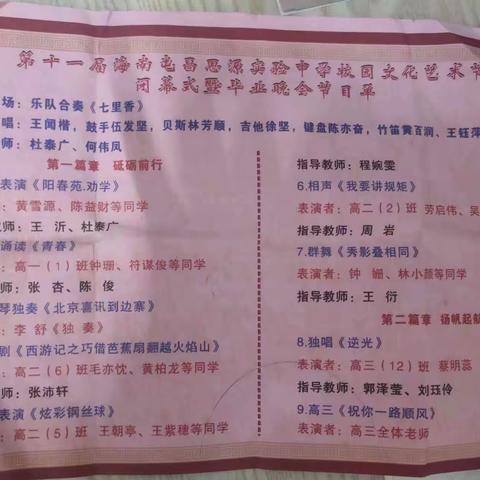 第十一届海南屯昌思源实验中学校园文化艺术节
闭幕式暨毕业晚会节目单
场：乐队合奏《七里香》
唱：王闻楷，鼓手伍发坚，贝斯林芳顺，吉他徐坚，键盘陈亦奋，竹笛黄百润、王钰萍
师：杜泰广、何伟凤
第一篇章 砥砺前行
表演《阳春苑.劝学》
：黄雪源、陈益财等同学
师：王 沂、杜泰广
诵读《青春》
：高一（1）班钟珊、符谋俊等同学
师：张 杏、陈 俊
琴独奏《北京喜讯到边寨》
：李 舒《独 奏》
剧《西游记之巧借芭蕉扇翻越火焰山》
：高二（6）班毛亦忱、黄柏龙等同学
师：张沛轩
表演《炫彩钢丝球》
：高二（5）班 王朝亭、王紫穗等同学
指导教师：程婉雯
6.相声《我要讲规矩》
表演者：高二（2）班 劳启伟、吴
指导教师：周 岩
7.群舞《秀影叠相同》
表演者：钟 姗、林小颜等同学
指导教师：王 衍
第二篇章 扬帆起航
8.独唱《逆光》
表演者：高三（12）班 蔡明蕊
指导教师：郭泽莹、刘珏伶
9.高三《祝你一路顺风》
表演者：高三全体老师